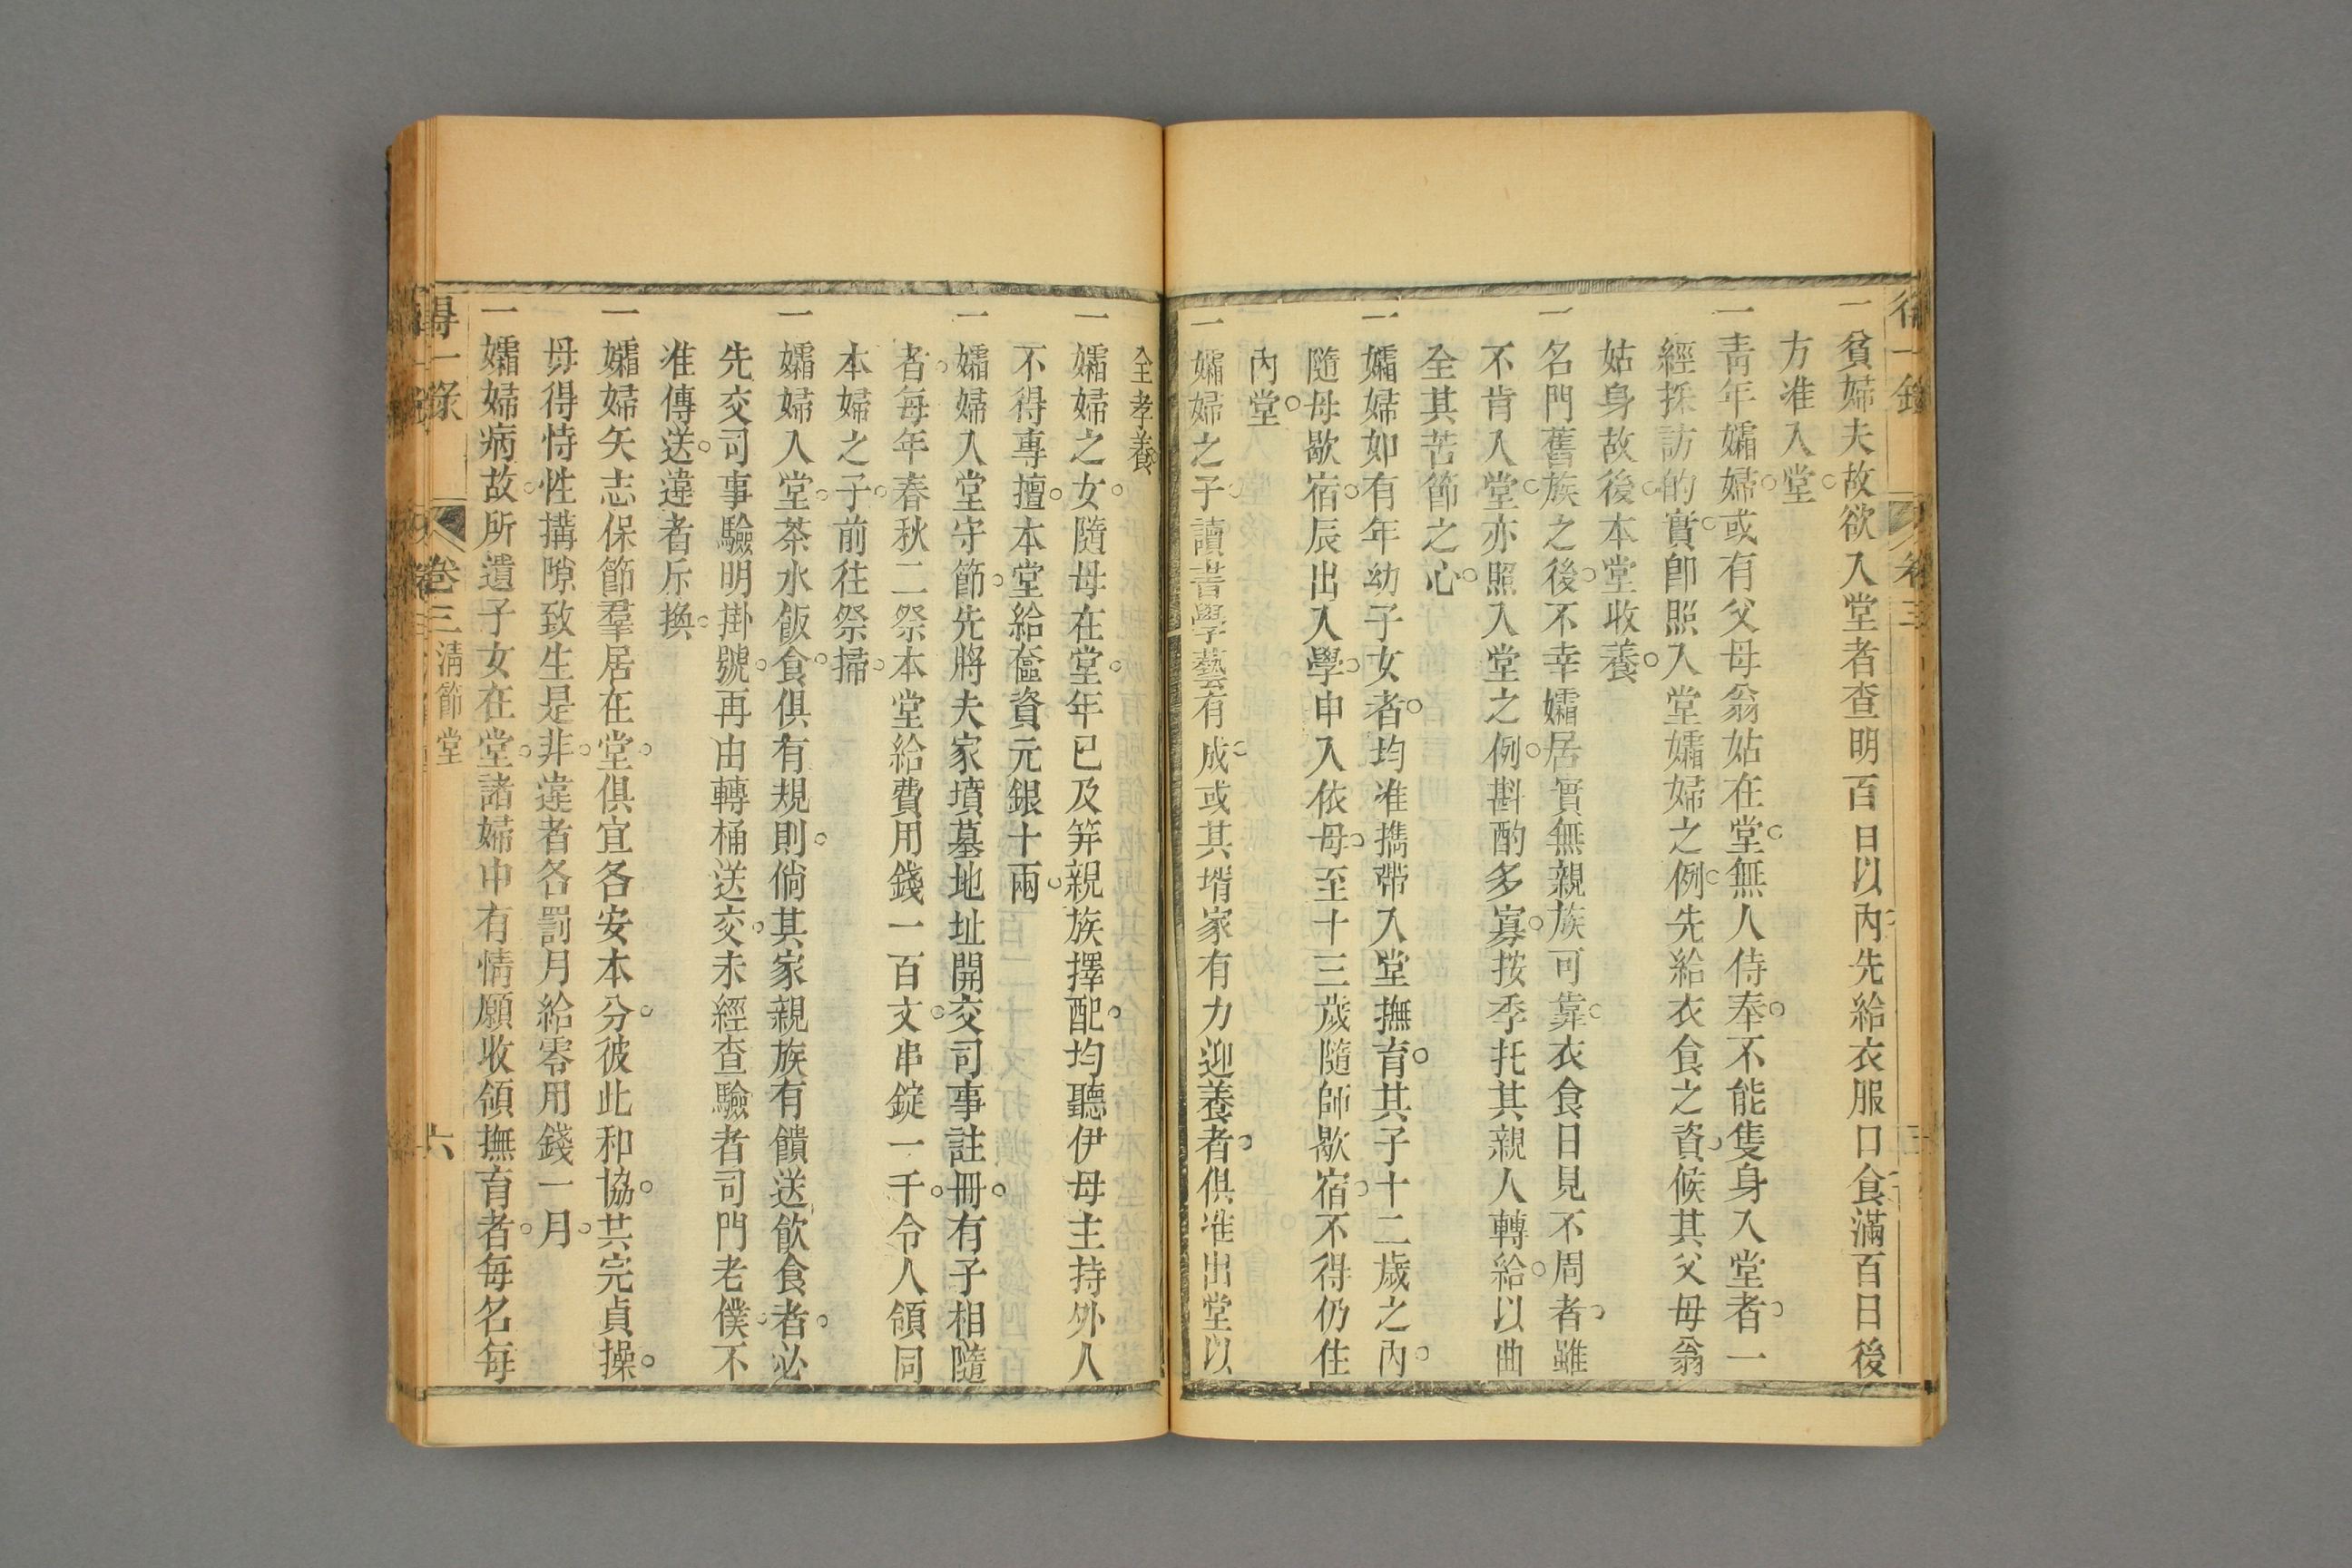 一貧婦夫故欲入堂者查明百日以內先給衣服口食滿百日後
方准入堂
一青年孀婦或有父母翁姑在堂無人侍奉不能隻身入堂者一
經採訪的實卽照入堂孀婦之例先給衣食之資候其父母翁
姑身故後本堂收養
一名門舊族之後不幸孀居實無親族可靠衣食日見不周者雖
不肯入堂亦照入堂之例斟酌多寡按季托其親人轉給以曲
全其苦節之心
一孀婦如有年幼子女者均准攜帶入堂撫育其子十二歲之內
隨母歇宿辰出入學申入依母至十三歲隨師歇宿不得仍住
內堂
一孀婦之子讀書學藝有成或其壻家有力迎養者俱准出堂以
全孝養
一孀婦之女隨母在堂年已及笄親族擇配均聽伊母主持外人
不得專擅本堂給奩資元銀十兩
一孀婦入堂守節先將夫家墳墓地址開交司事註冊有子相隨
者每年春秋二祭本堂給費用錢一百文串錠一千令人領同
本婦之子前往祭掃
一孀婦入堂茶水飯食俱有規則倘其家親族有饋送飲食者必
先交司事驗明掛號再由轉桶送交未經查驗者司門老僕不
准傳送違者斥換
一孀婦矢志保節羣居在堂俱宜各安本分彼此和協共完貞操
毋得恃性搆隙致生是非違者各罰月給零用錢一月
一孀婦病故所遺子女在堂諸婦中有情願收領撫育者每名每
得一錄 卷三 清節堂 六